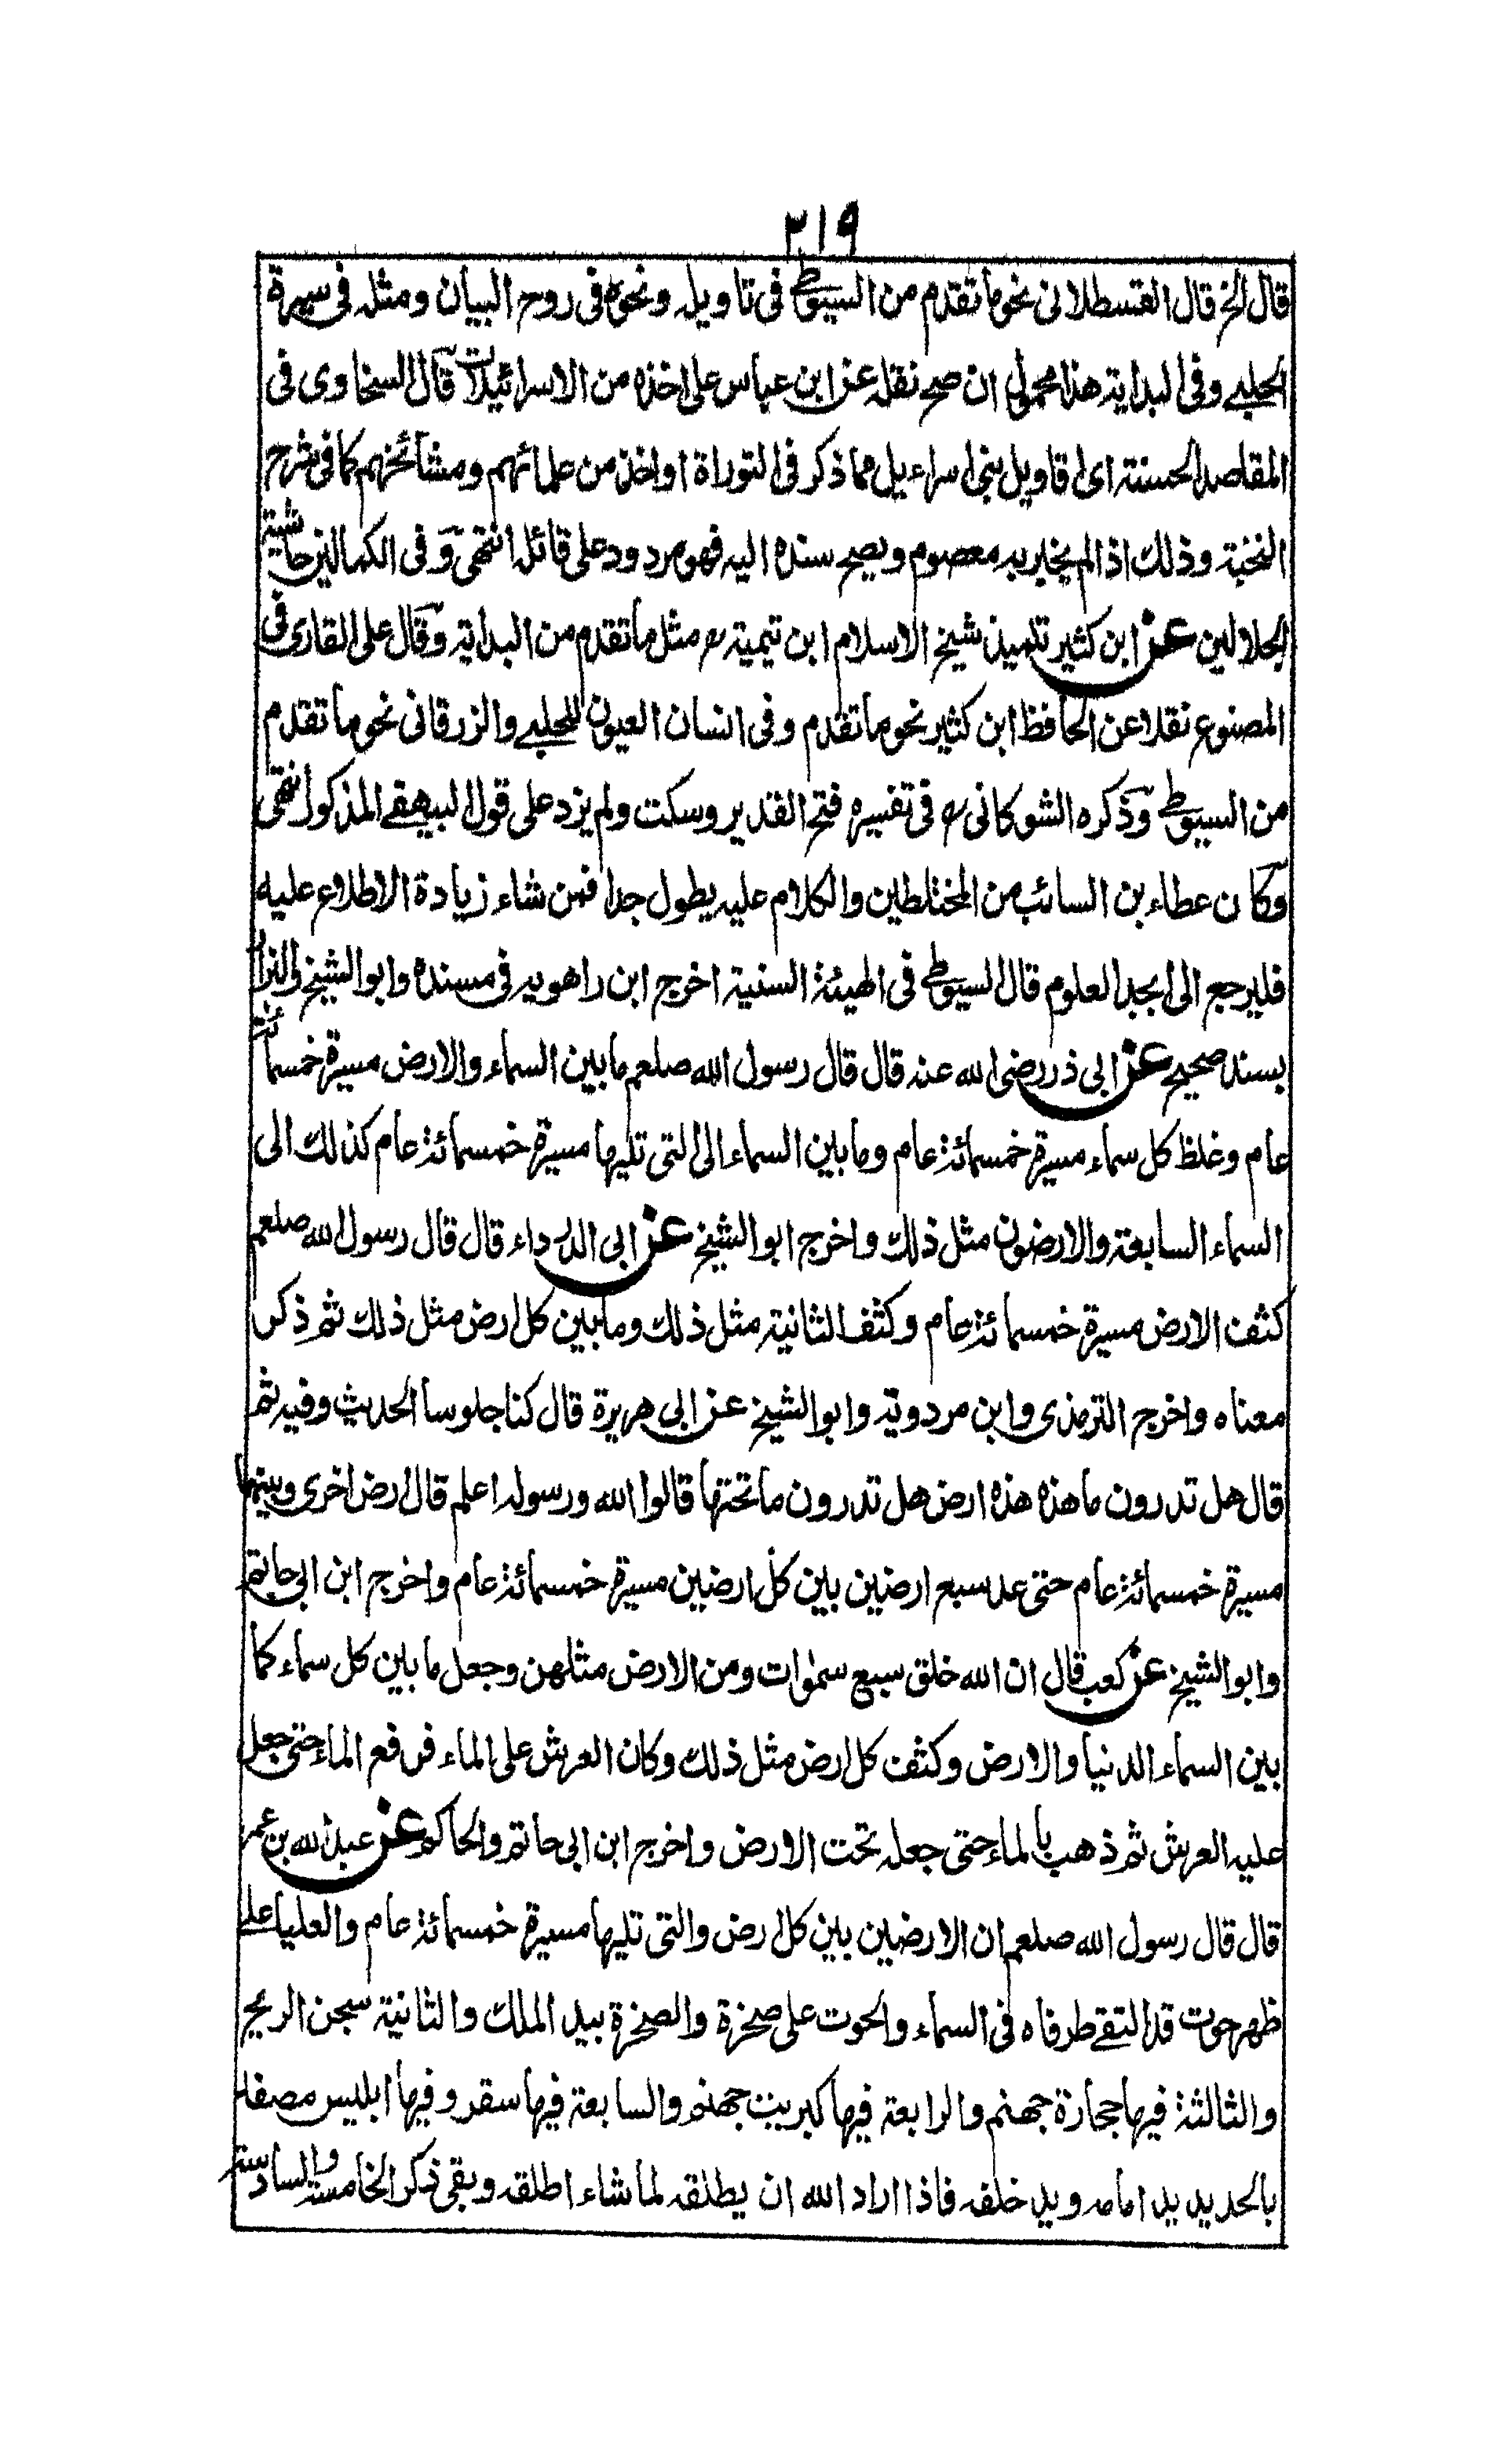 ٢١٩
قال الخ قال القسطلانى نحو ما تقدم من السيوطى فى تاويله ونحوه فى روح البيان ومثله فى سيرة
الحلبى وفى البداية هذا محمول ان صح نقله عن ابن عباس على اخذه من الاسرائيليات قال السخاوى فى
المقاصد الحسنة اى اقاويل بنى اسراءيل مما ذكر فى التوراة او اخذ من علمائهم ومشائخهم كما فى شرح
النخبة وذلك اذا لم يخبر به معصوم ويصح سنده اليه فهو مردود على قائله انتهى وفى الكمالين حاشية
الجلالين عن ابن كثير تلميذ شيخ الاسلام ابن تيمية رح مثل ما تقدم من البداية وقال على القارى فى
المصنوع نقلا عن الحافظ ابن كثير نحو ما تقدم وفى انسان العيون للحلبى والزرقانى نحو ما تقدم
من السيوطى وذكره الشوكانى رح فى تفسيره فتح القدير وسكت ولم يزد على قول البيهقى المذكور انتهى
وكان عطاء بن السائب من المختلطين والكلام عليه يطول جدا فمن شاء زيادة الاطلاع عليه
فليرجع الى ابجد العلوم قال السيوطى فى الهيئة السنية اخرج ابن راهويه فى مسنده وابو الشيخ والبزار
بسند صحيح عن ابى ذر رضى الله عنه قال قال رسول الله صلعم ما بين السماء والارض مسيرة خمسمائة
عام وغلظ كل سماء مسيرة خمسمائة عام وما بين السماء الى التى تليها مسيرة خمسمائة عام كذلك الى
السماء السابعة والارضون مثل ذلك واخرج ابو الشيخ عن ابى الدرداء قال قال رسول الله صلعم
كثف الارض مسيرة خمسمائة عام وكثف الثانية مثل ذلك وما بين كل ارض مثل ذلك ثم ذكر
معناه واخرج الترمذى وابن مردوية وابو الشيخ عن ابى هريرة قال كنا جلوسا الحديث وفيه ثم
قال هل تدرون ما هذه هذه ارض هل تدرون ما تحتها قالوا الله ورسوله اعلم قال ارض اخرى وبينهما
مسيرة خمسمائة عام حتى عد سبع ارضين بين كل ارضين مسيرة خمسمائة عام واخرج ابن ابى حاتم
وابو الشيخ عن كعب قال ان الله خلق سبع سموات ومن الارض مثلهن وجعل ما بين كل سماء كما
بين السماء الدنيا والارض وكثف كل ارض مثل ذلك وكان العرش على الماء فرفع الماء حتى جعل
عليه العرش ثم ذهب بالماء حتى جعله تحت الارض واخرج ابن ابى حاتم والحاكم عن عبد الله بن عمر
قال قال رسول الله صلعم ان الارضين بين كل ارض والتى تليها مسيرة خمسمائة عام والعليا على
ظهر حوت قد التقى طرفاه فى السماء والحوت على صخرة والصخرة بيد الملك والثانية سجن الريح
والثالثة فيها حجارة جهنم والرابعة فيها كبريت جهنم والسابعة فيها سقر وفيها ابليس مصفد
بالحديد يد امامه ويد خلفه فاذا اراد الله ان يطلقه لما شاء اطلقه وبقى ذكر الخامسة والسادسة